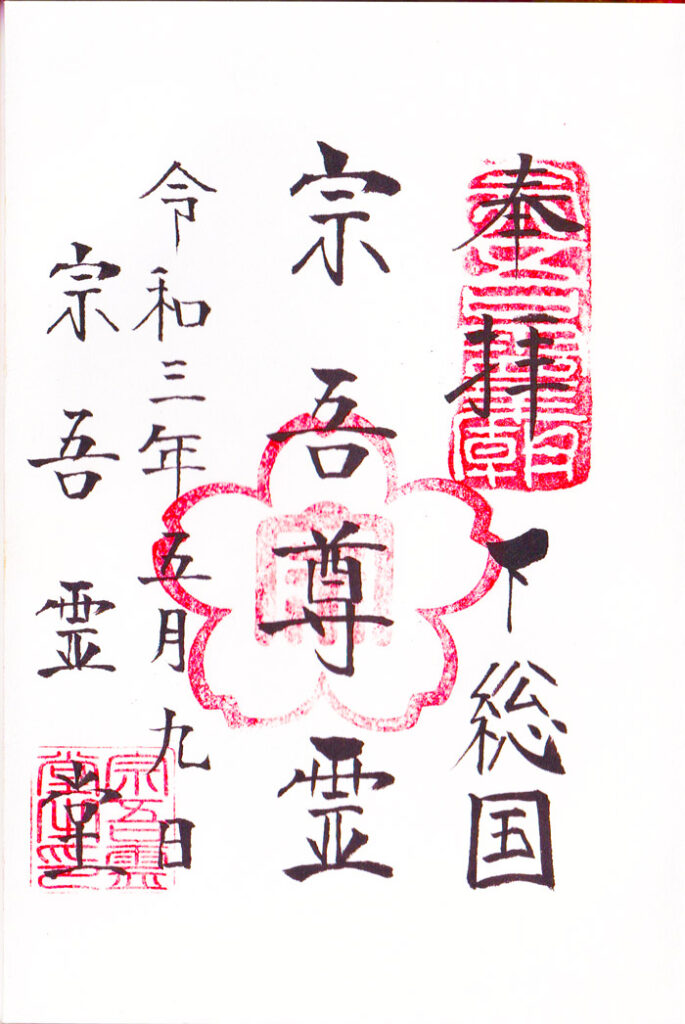 奉拝
下総国
宗吾尊霊
令和三年五月九日
宗吾霊堂